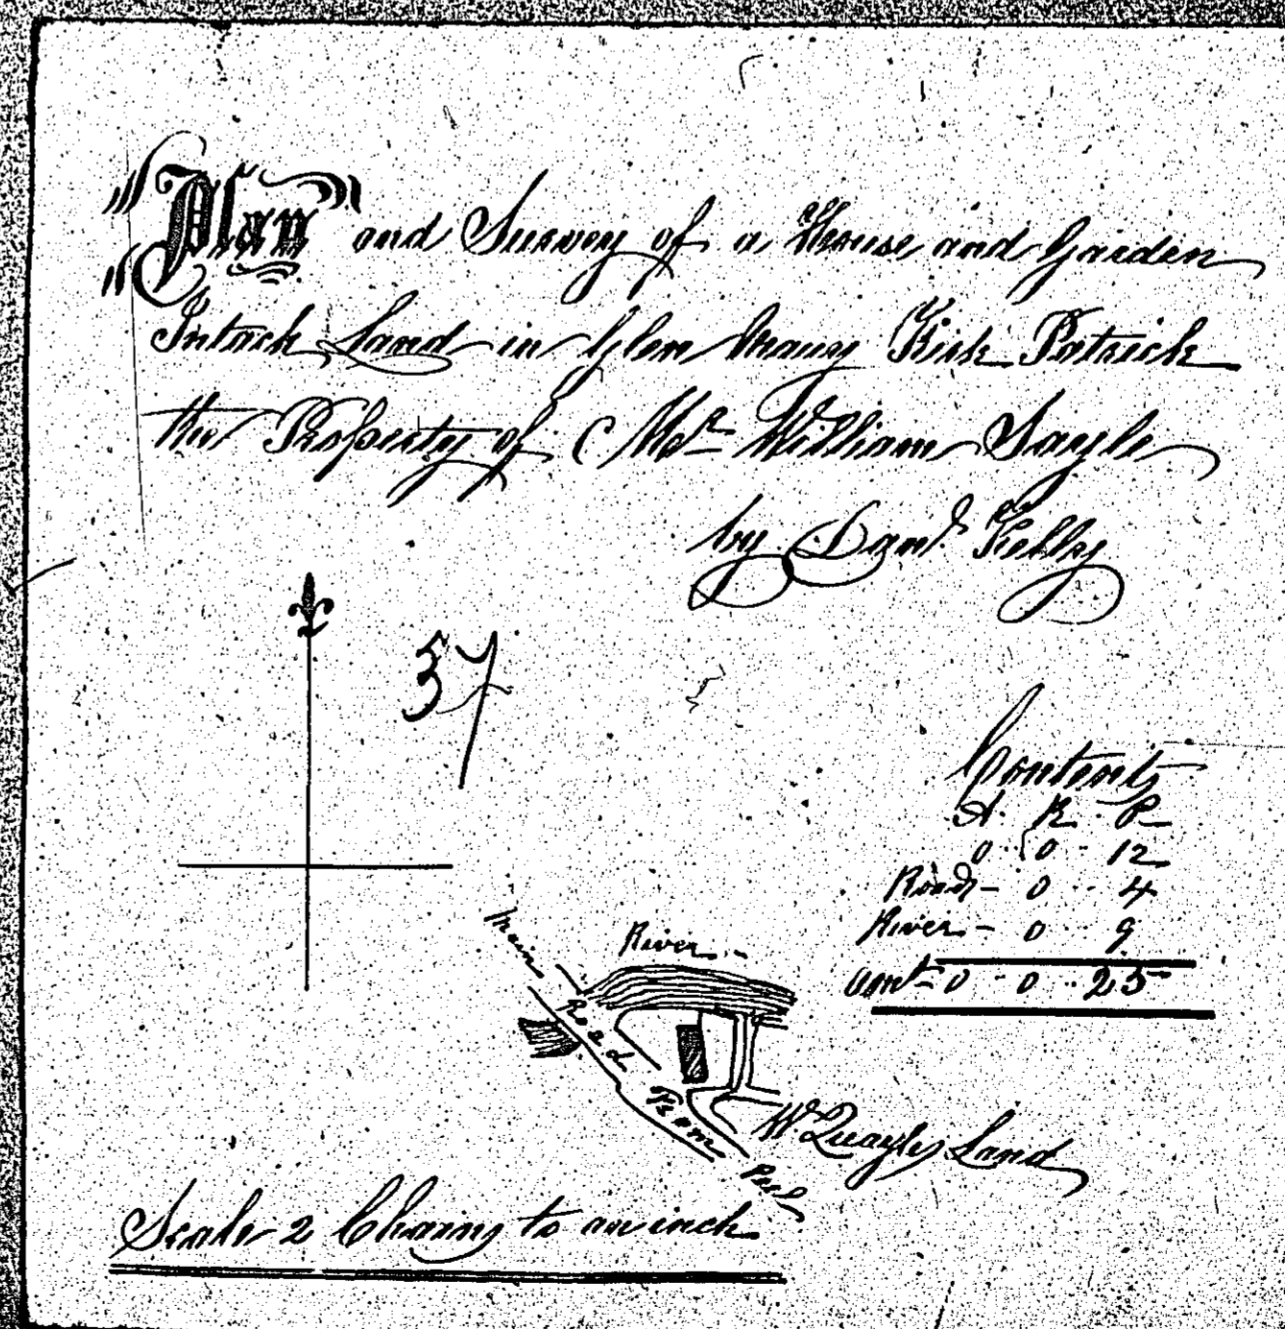 "Plan" and Survey of a House and Garden
Intack Land in Glen Kirk Patrick
the Property of Mr William Sayle
by Danl. Kelly
57
Contents
A. R. P
0 .. 0 .. 12
Road - 0 .. 4
River - 0 . 9
Amt - 0 - 0 . 25
River
Main Road From Peel
W Quayles Land
Scale 2 Chains to an inch